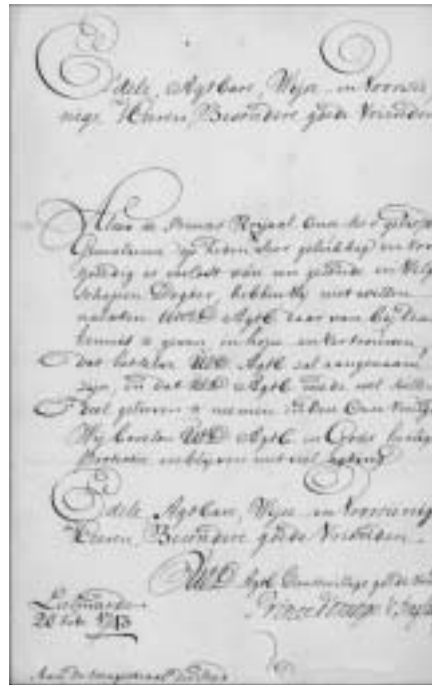 Edele, AgtBare, Wijse, en Voorsie
nige Heeren, Besondere goede Vrienden
Alsoo de Princes Roijaal Onse seer geliefde
Gemalinne op heden seer geluckig en voor
spoedig is verlost van een gesonde en Welge
schapen Dogter, hebben Wij niet willen
naelaten UwE AgtB daar van bij dese
kennis te geven, in hope en vertrouwen
dat het selve UE AgtB sal aangenaam
zijn, en dat UE AgtB mede wel sullen
deel gelieven te neemen in dese Onse vreugde
Wij bevelen UE AgtB in Godes heilige
Protectie en blijven met veel agting
Edele, AgtBare, Wijse, en Voorsienig
Heeren, Besondere goede Vrienden
UwE AgtB goede
Prince d'Orange
Leeuwarden
1743
Aan de Magistraat